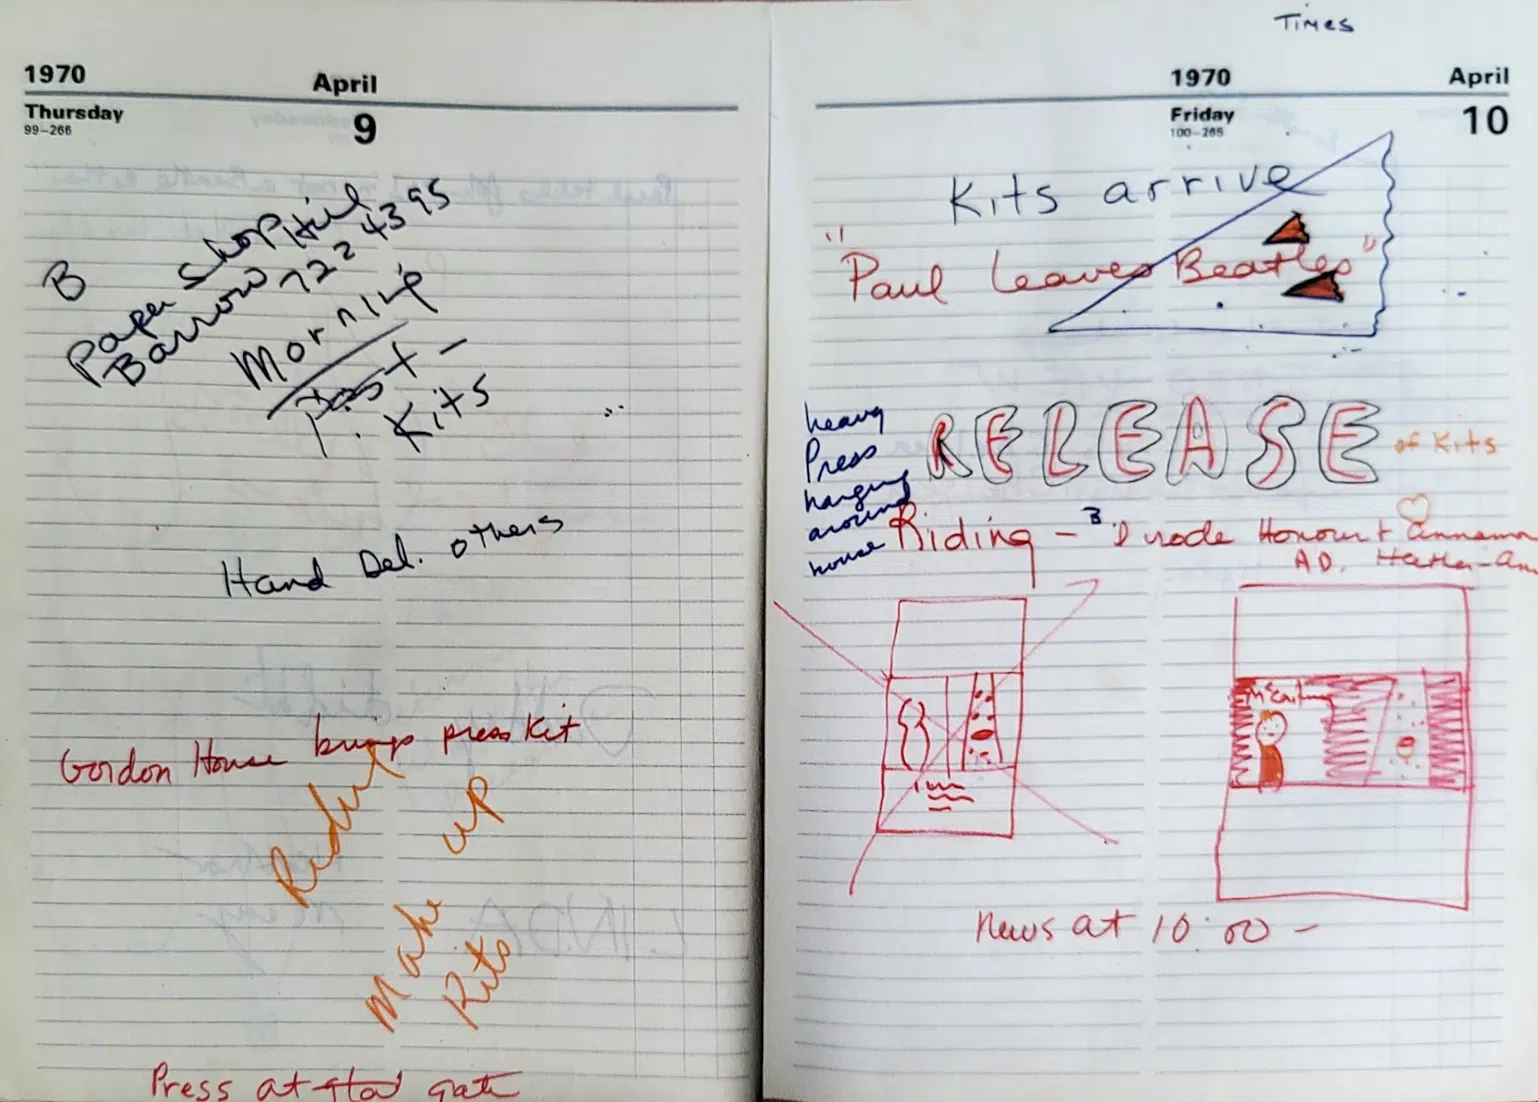 1970 April
Thursday 9
99-266
B
Paper Shop Hill
Barrow 722 4395
Morning
Post -
Kits
Hand Del. others
Gordon House brings press Kit
Make up
Kits
Press at gate
Times
1970 April
Friday 10
100-265
Kits arrive
"Paul leaves Beatles"
heavy
Press
hanging
around
house
RELEASE of Kits
Riding - B. I rode Honour +
AD.
News at 10:00 -